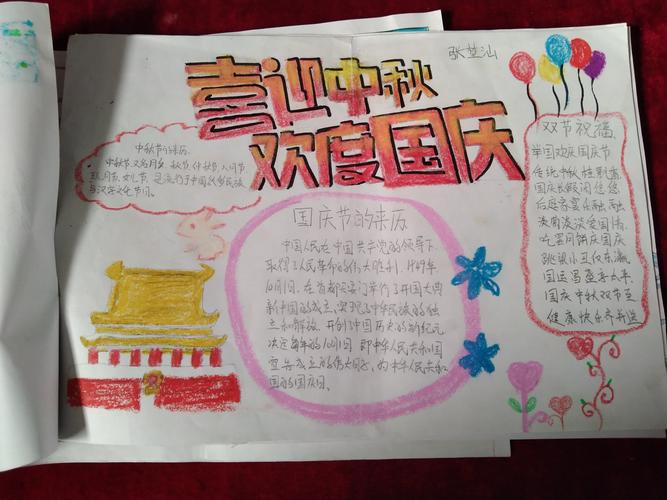 张芷汕
喜迎中秋
欢度国庆
中秋节的来历
中秋节又名月夕、秋节、仲秋节、八月节
拜月节、女儿节、是流行于中国众多民族
与汉字文化节间。
国庆节的来历
中国人民在中国共产党的领导下
取得了人民革命的伟大胜利,1949年
10月1日,在首都天安门举行了开国大典
新中国的成立,实现了中华民族的独
立和解放 开创了中国历史的新纪元
决定每年的10月1日 即中华人民共和国
宣告成立的伟大日子,为中华人民共和
国的国庆日。
双节祝福
举国欢庆国庆节
传统中秋
国庆长假闲悠悠
后庭家宴乐融融
淡南淡淡爱国情
吃罢月饼庆国庆
跳梁小丑
国运
国庆中秋双节至
健康快乐齐